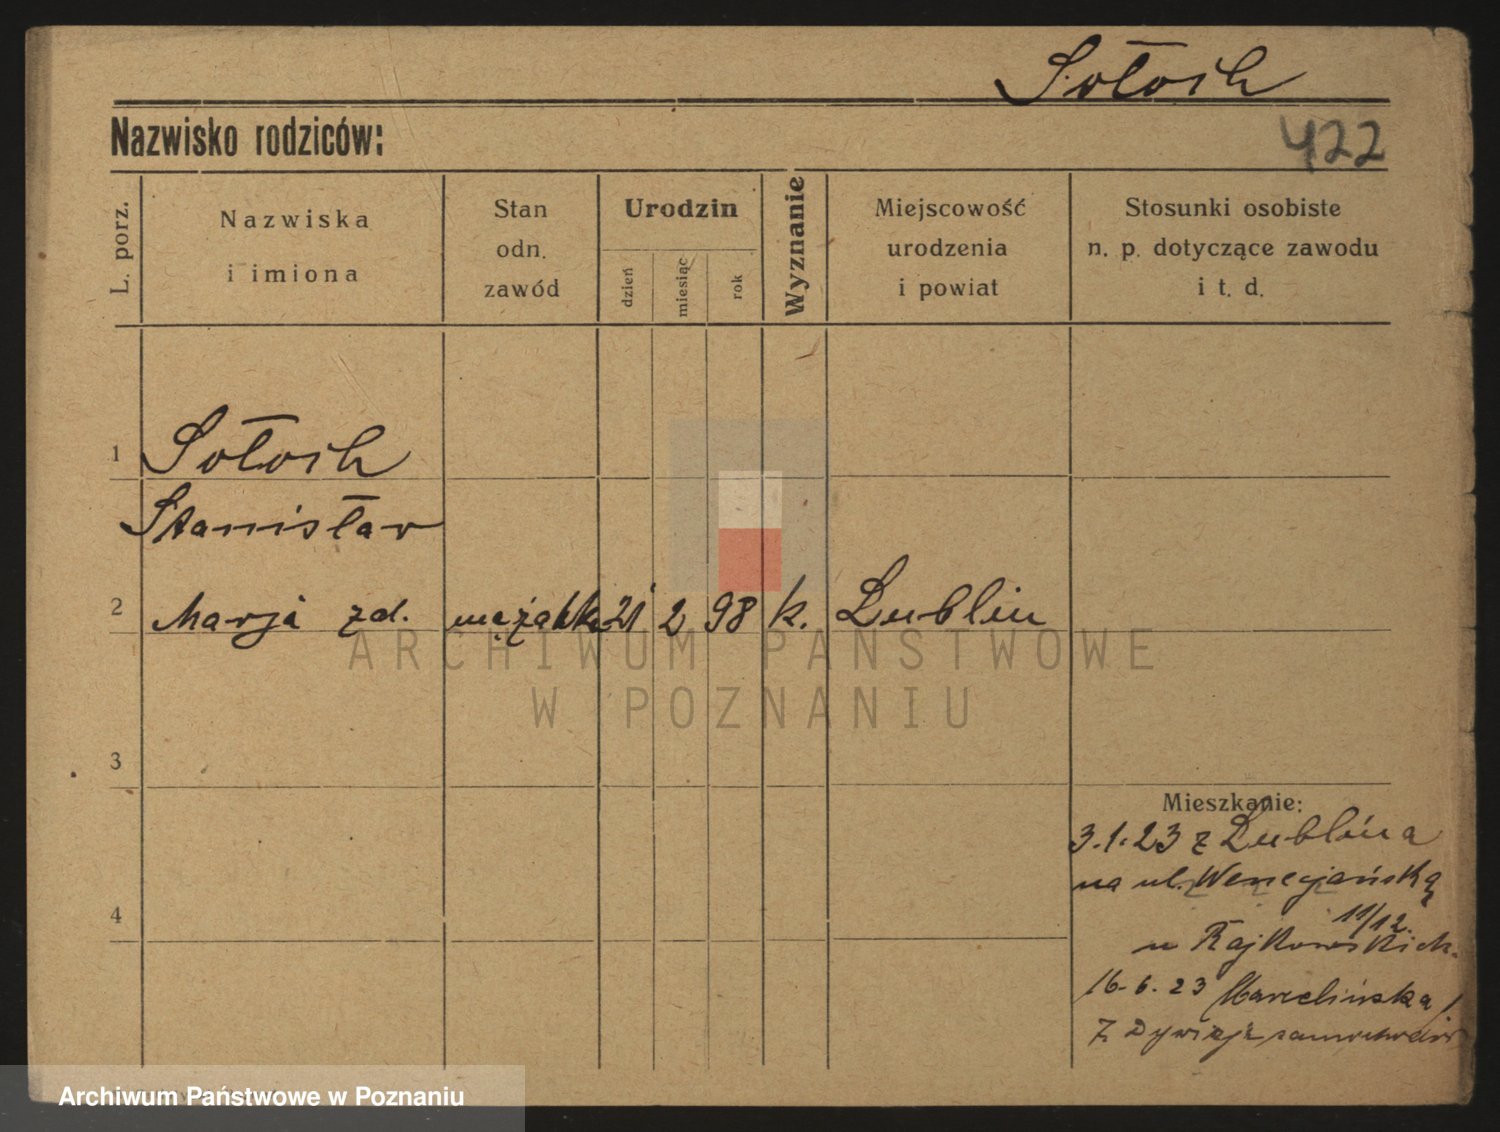 Sołoch
Nazwisko rodziców:
422
L. porz.
Nazwiska
i imiona
Stan
odn.
zawód
Urodzin
dzień
miesiąc
rok
Wyznanie
Miejscowość
urodzenia
i powiat
Stosunki osobiste
n. p. dotyczące zawodu
i t. d.
1 Sołoch
Stanisław
2 Marja zd. mężatka 21 2 98 k. Lublin
ARCHIWUM PAŃSTWOWE
W POZNANIU
3
Mieszkanie:
3.1.23 z Lublina
na ul. Wenecjańską
11/12.
4
u Rajkowskich.
16.6.23 Marcelińska
7 Dywizja
Archiwum Państwowe w Poznaniu